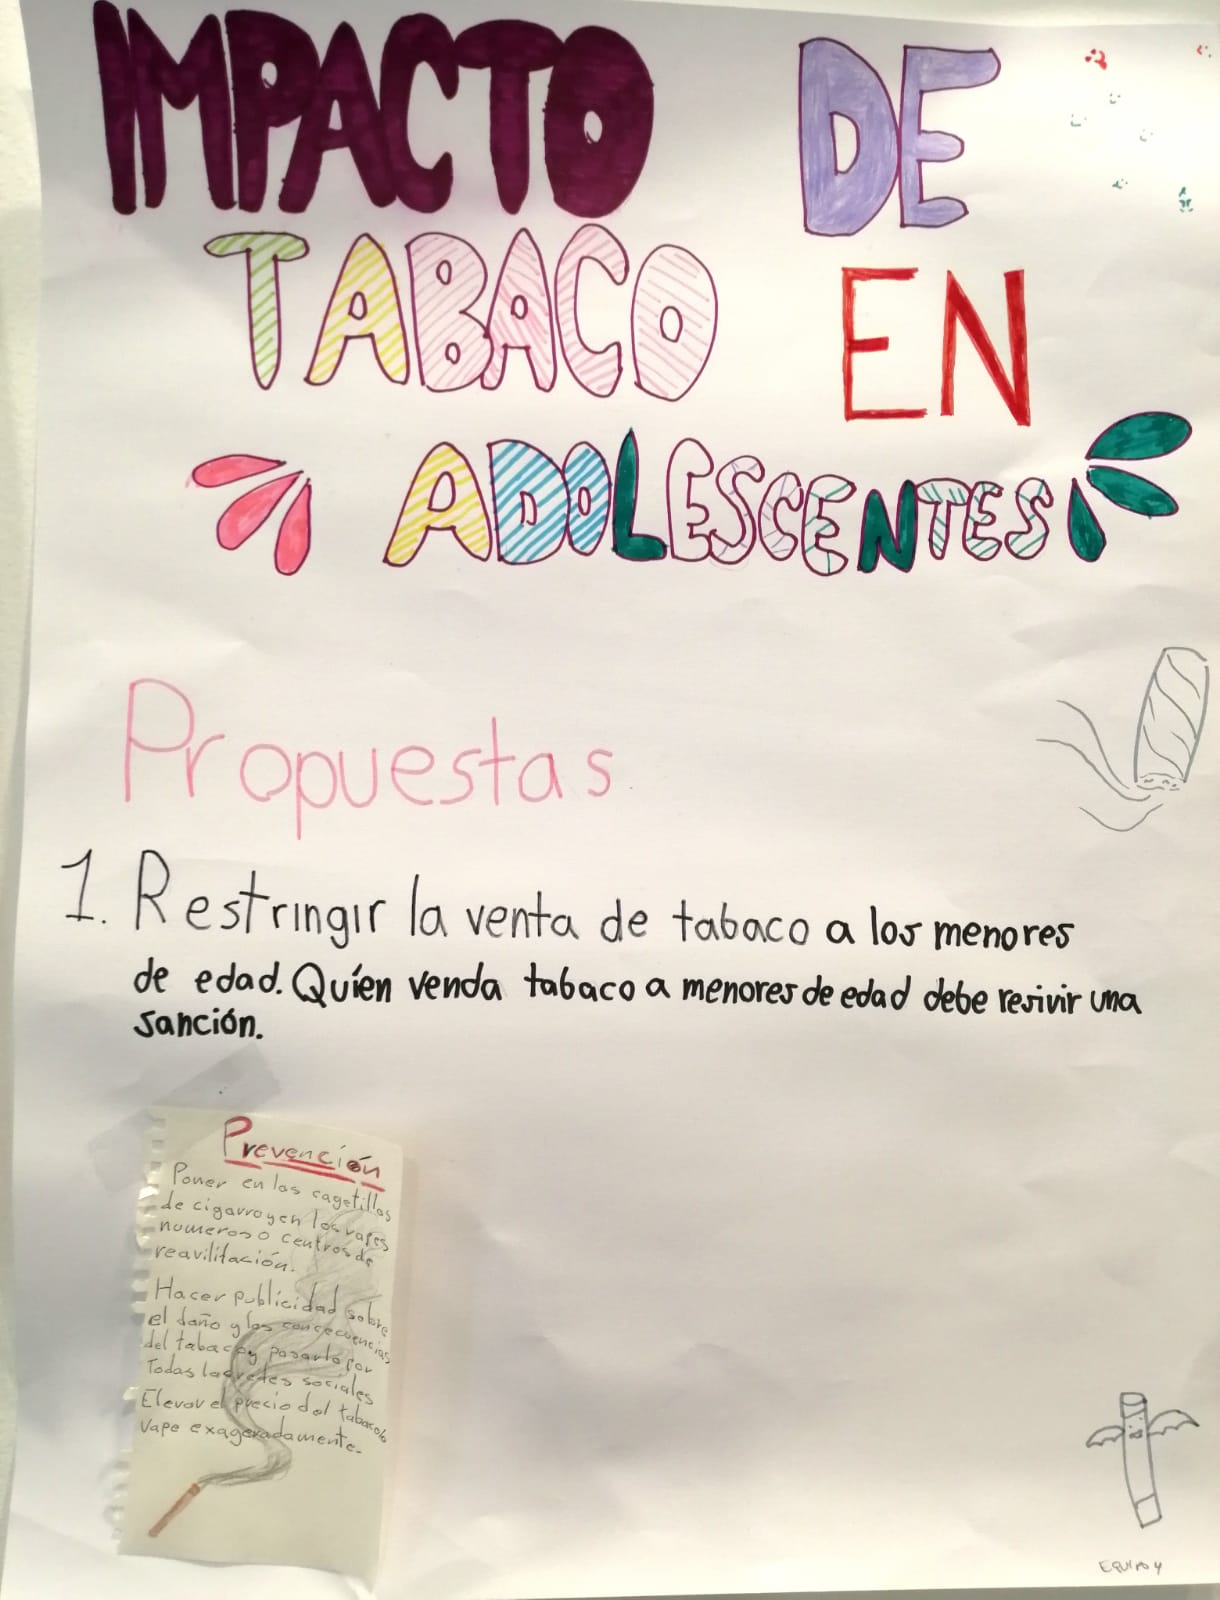 IMPACTO DE
TABACO EN
ADOLESCENTES
Propuestas
1. Restringir la venta de tabaco a los menores
de edad. Quíen venda tabaco a menores de edad debe resivir una
sanción.
Prevención
Poner en las cagetillas
de cigarro y en los vapes
numeros o centros de
reavilitación.
Hacer publicidad sobre
el daño y las concecuencias
del tabaco y pasarlo por
Todas las redes sociales
Elevar el precio del tabaco o
vape exageradamente.
EQUIPO 4